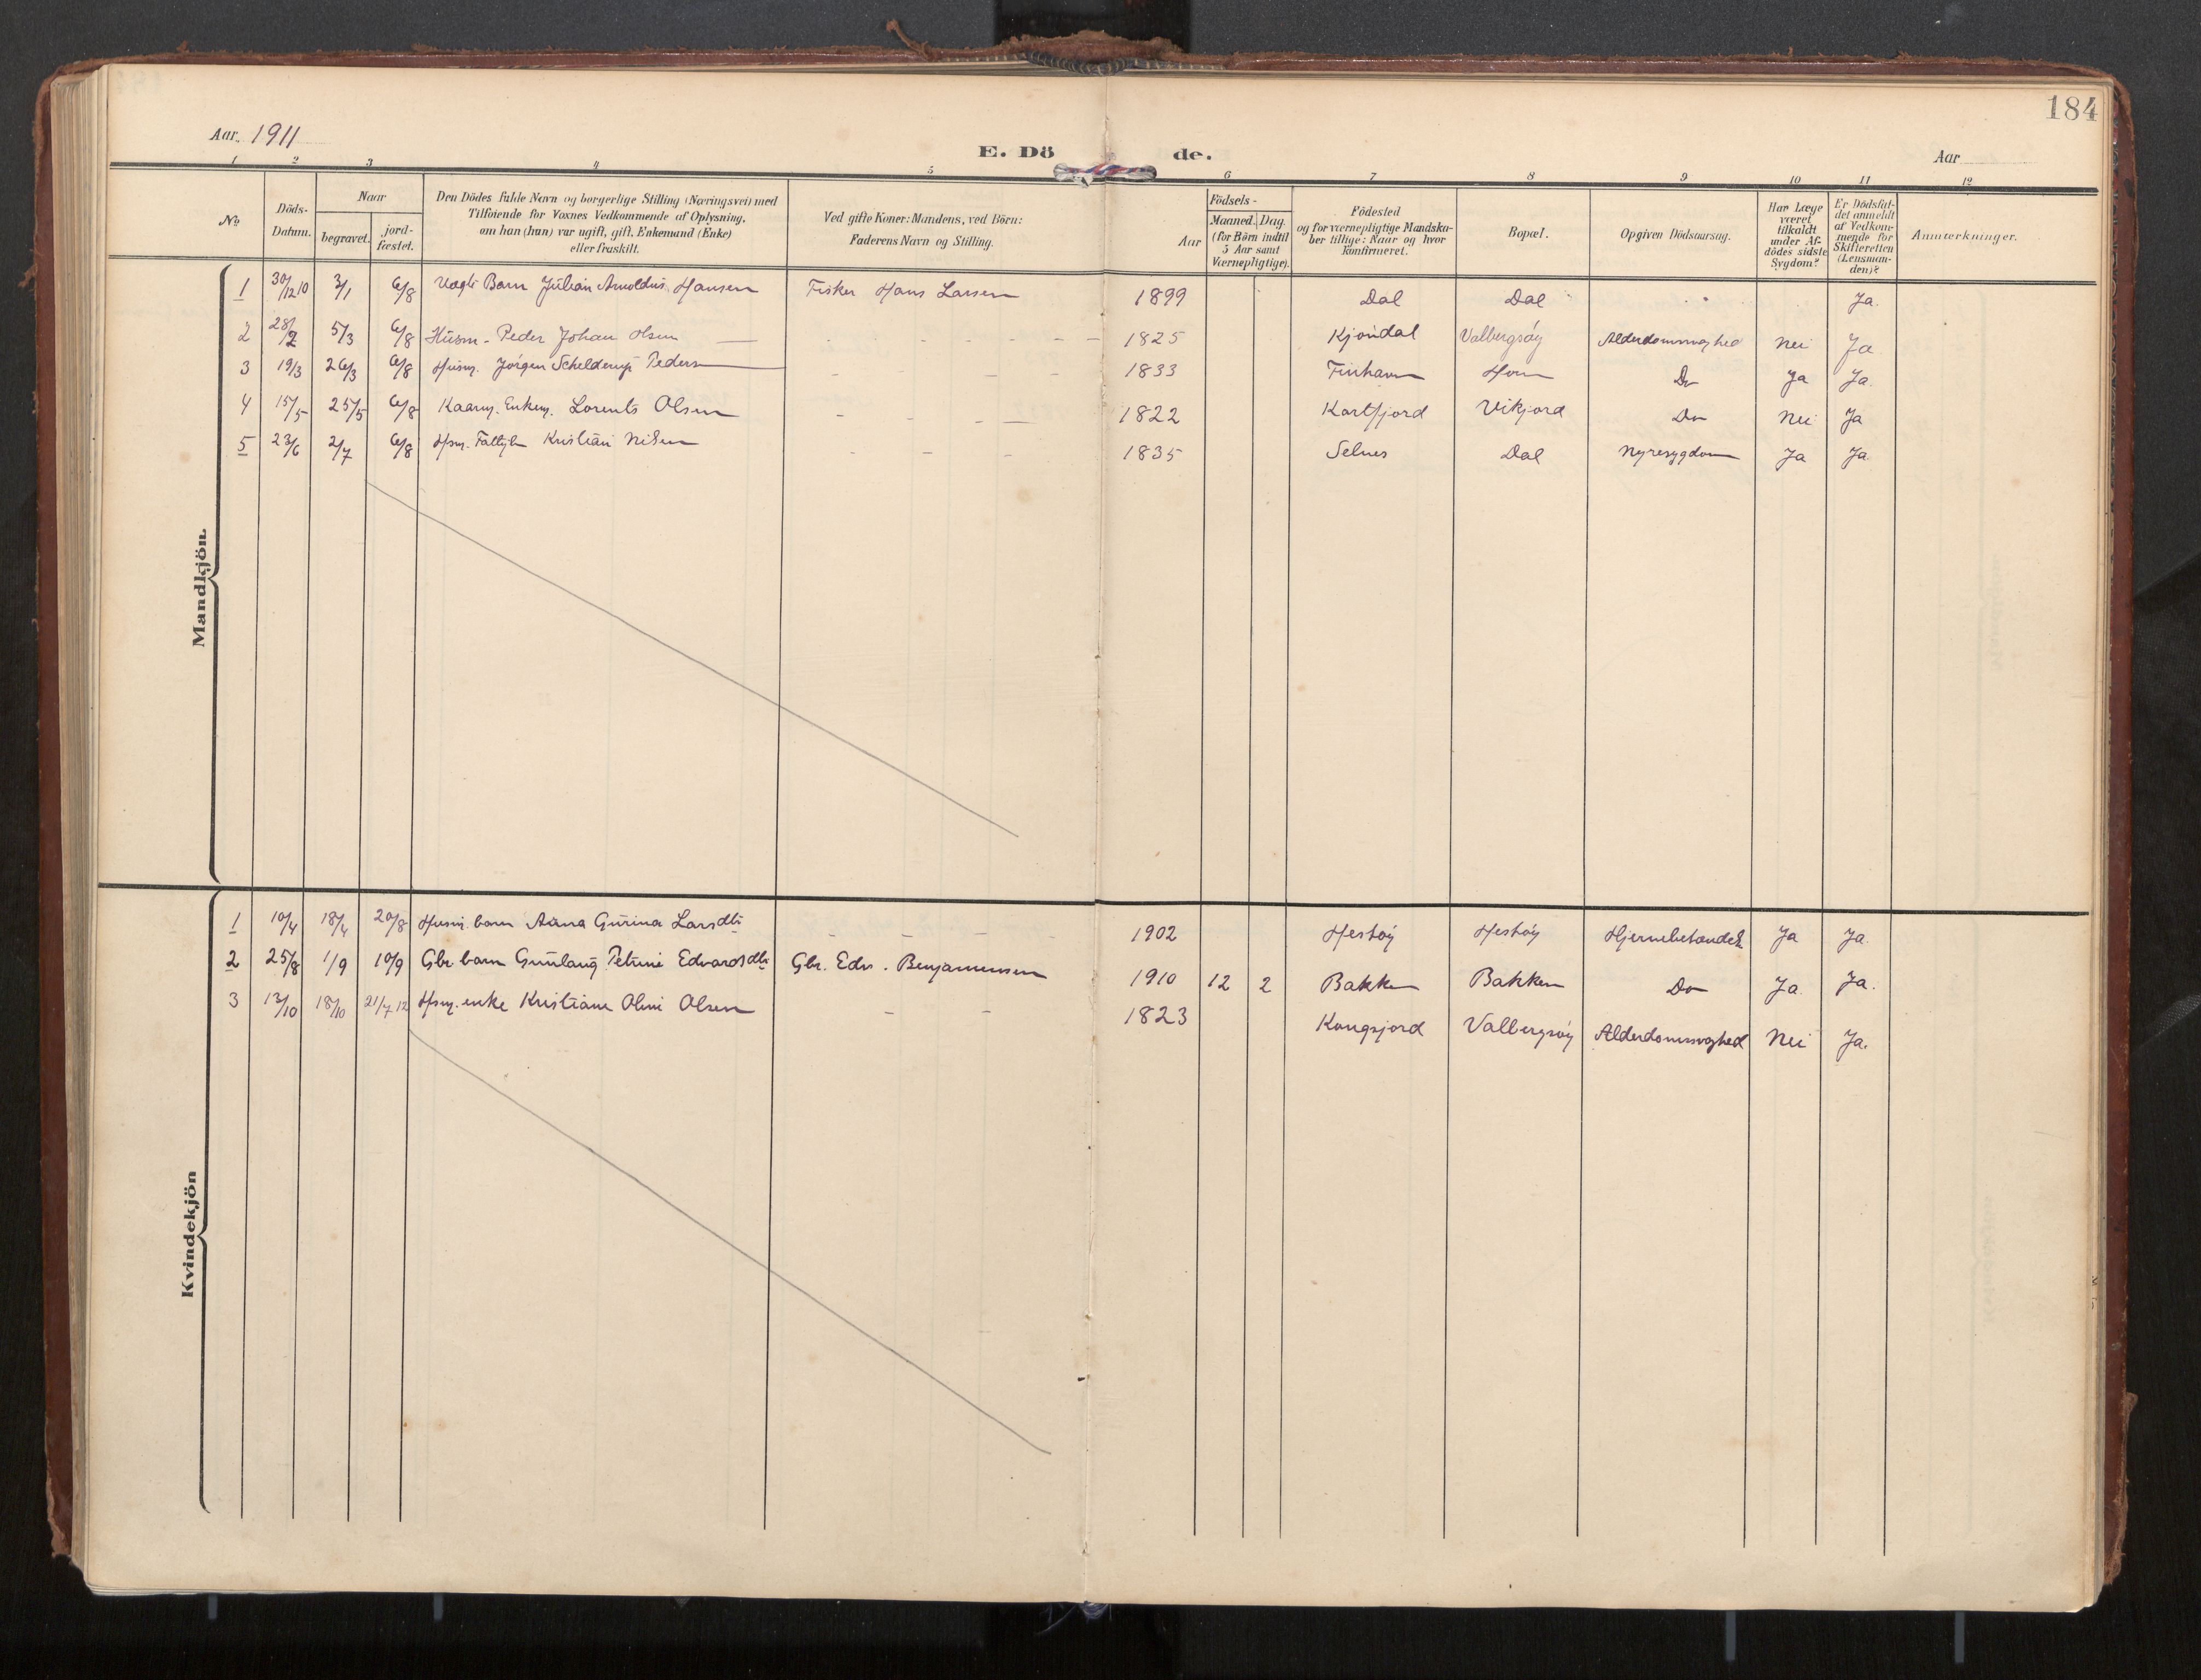 184
Aar. 1911
E. Dö de.
Aar
1 2 3 4 5 6 7 8 9 10 11 12
No
Döds-Datum.
Naar
begravet.
jord-fæstet.
Den Dödes fulde Navn og borgerlige Stilling (Næringsvei) med
Tilföiende for Voxnes Vedkommende af Oplysning,
om han (hun) var ugift, gift, Enkemand (Enke)
eller fraskilt.
Ved gifte Koner: Mandens, ved Börn:
Faderens Navn og Stilling.
Födsels-
Aar
Maaned. Dag.
(for Börn indtil
5 Aar samt
Værnepligtige).
Födested
og for værnepligtige Mandska-
ber tillige: Naar og hvor
konfirmeret.
Bopæl.
Opgiven Dödsaarsag.
Har Læge
været
tilkaldt
under Af-
dödes sidste
Sygdom?
Er Dödsfal-
det anmeldt
af Vedkom-
mende for
Skifteretten
(Lensman-
den)?
Anmærkninger.
Mandkjön.
1 30/12 10 3/1 6/8 Uægte Barn Julian Arnoldus Hansen Fisker Hans Larsen 1899 Dal Dal Ja.
2 28/2 5/3 6/8 Husm. Peder Johan Olsen 1825 Kjøndal Valbergsøy Alderdomssvaghed Nei Ja
3 19/3 26/3 6/8 Husm. Jørgen Schelderup Pedersen 1833 Finhavn Horn Do Ja Ja.
4 15/5 25/5 6/8 Kaarm. Enkem. Lorents Olsen 1822 Kartfjord Vikjord Do Nei Ja
5 23/6 2/7 6/8 Hsm. Kristian Nilsen 1835 Selnes Dal Nyresygdom Ja Ja.
Kvindekjön
1 10/4 18/4 20/8 Husm. barn Anna Gurina Larsdtr 1902 Hestøy Hestøy Ja Ja.
2 25/8 1/9 10/9 Gbr. barn Gunlaug Petrine Edvardsdtr Gbr. Edv. Benjaminsen 1910 12 2 Bakken Bakken Do Ja. Ja.
3 13/10 18/10 21/7 12 Hsm. enke Kristiane Oline Olsen 1823 Kongsjord Valbergsøy Alderdomssvaghed Nei Ja.